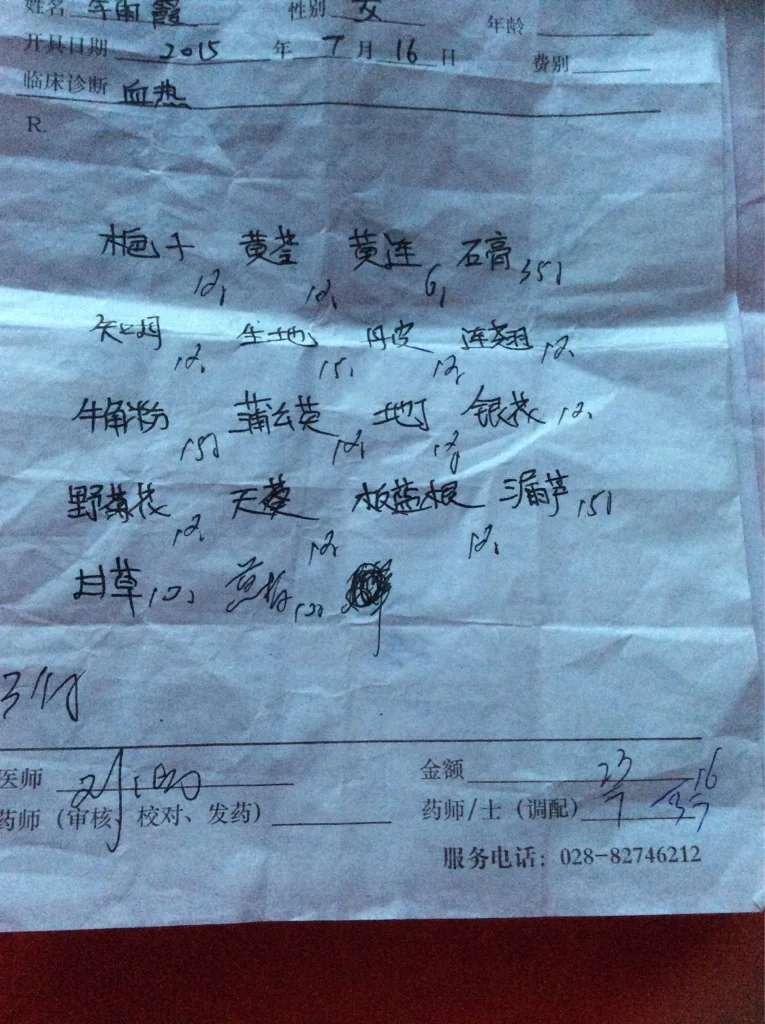 姓名 李雨霞 性别 女 年龄
开具日期 2015 年 7 月 16 日 费别
临床诊断 血热
R.
栀子 12 黄芩 12 黄连 6 石膏 35
知母 12 生地 15 丹皮 12 连翘 12
牛角粉 15 蒲公英 12 地丁 12 银花 12
野菊花 12 天葵 12 板蓝根 12 漏芦 15
甘草 10 黄柏 10
3付
医师 金额 23
药师 (审核、校对、发药) 药师/士 (调配) 7
服务电话: 028-82746212